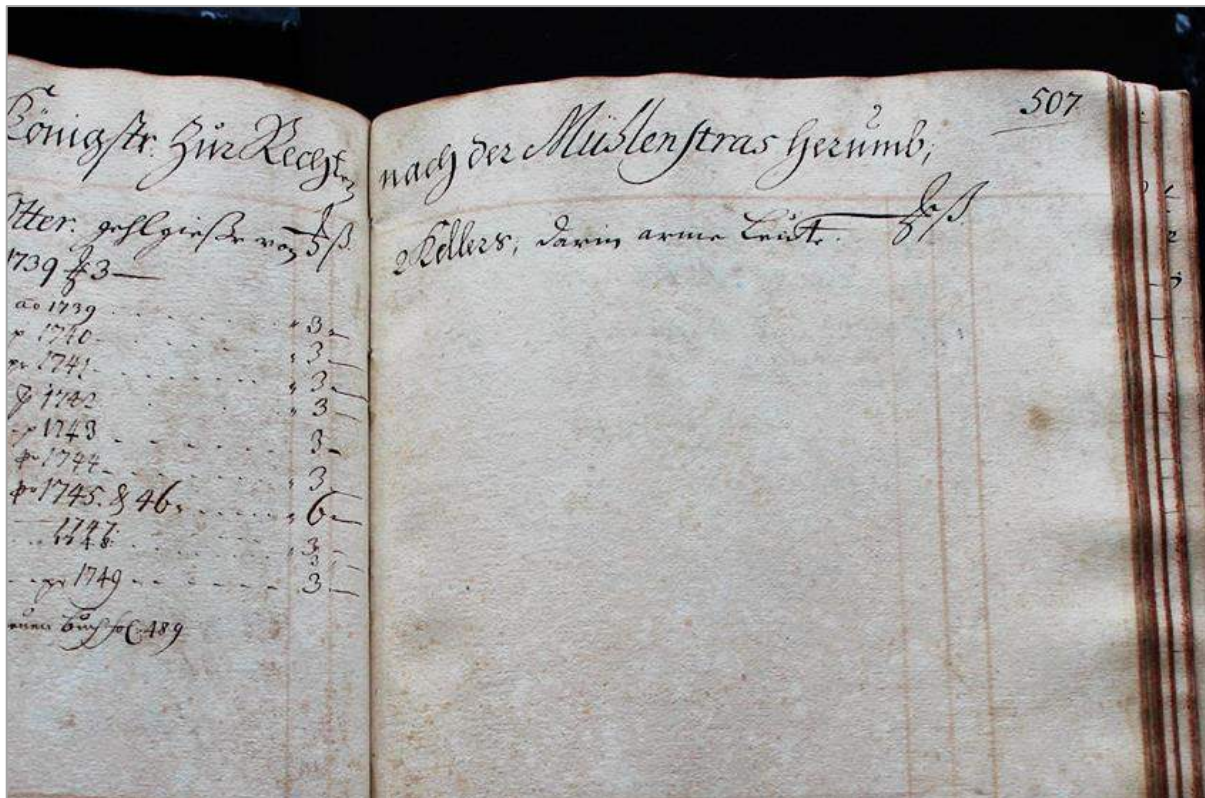 Königstr. Zur Rechten
Otter. gehlgießer von
1739 3
ao 1739 3
p 1740 3
pr 1741 3
p 1742 3
p 1743 3
pr 1744 3
pr 1745. & 46. 6
1747 3
1748 3
pr 1749 3
Buch fol. 489
507
nach der Mühlenstras herumb,
2 Kellers, darin arme Leute.